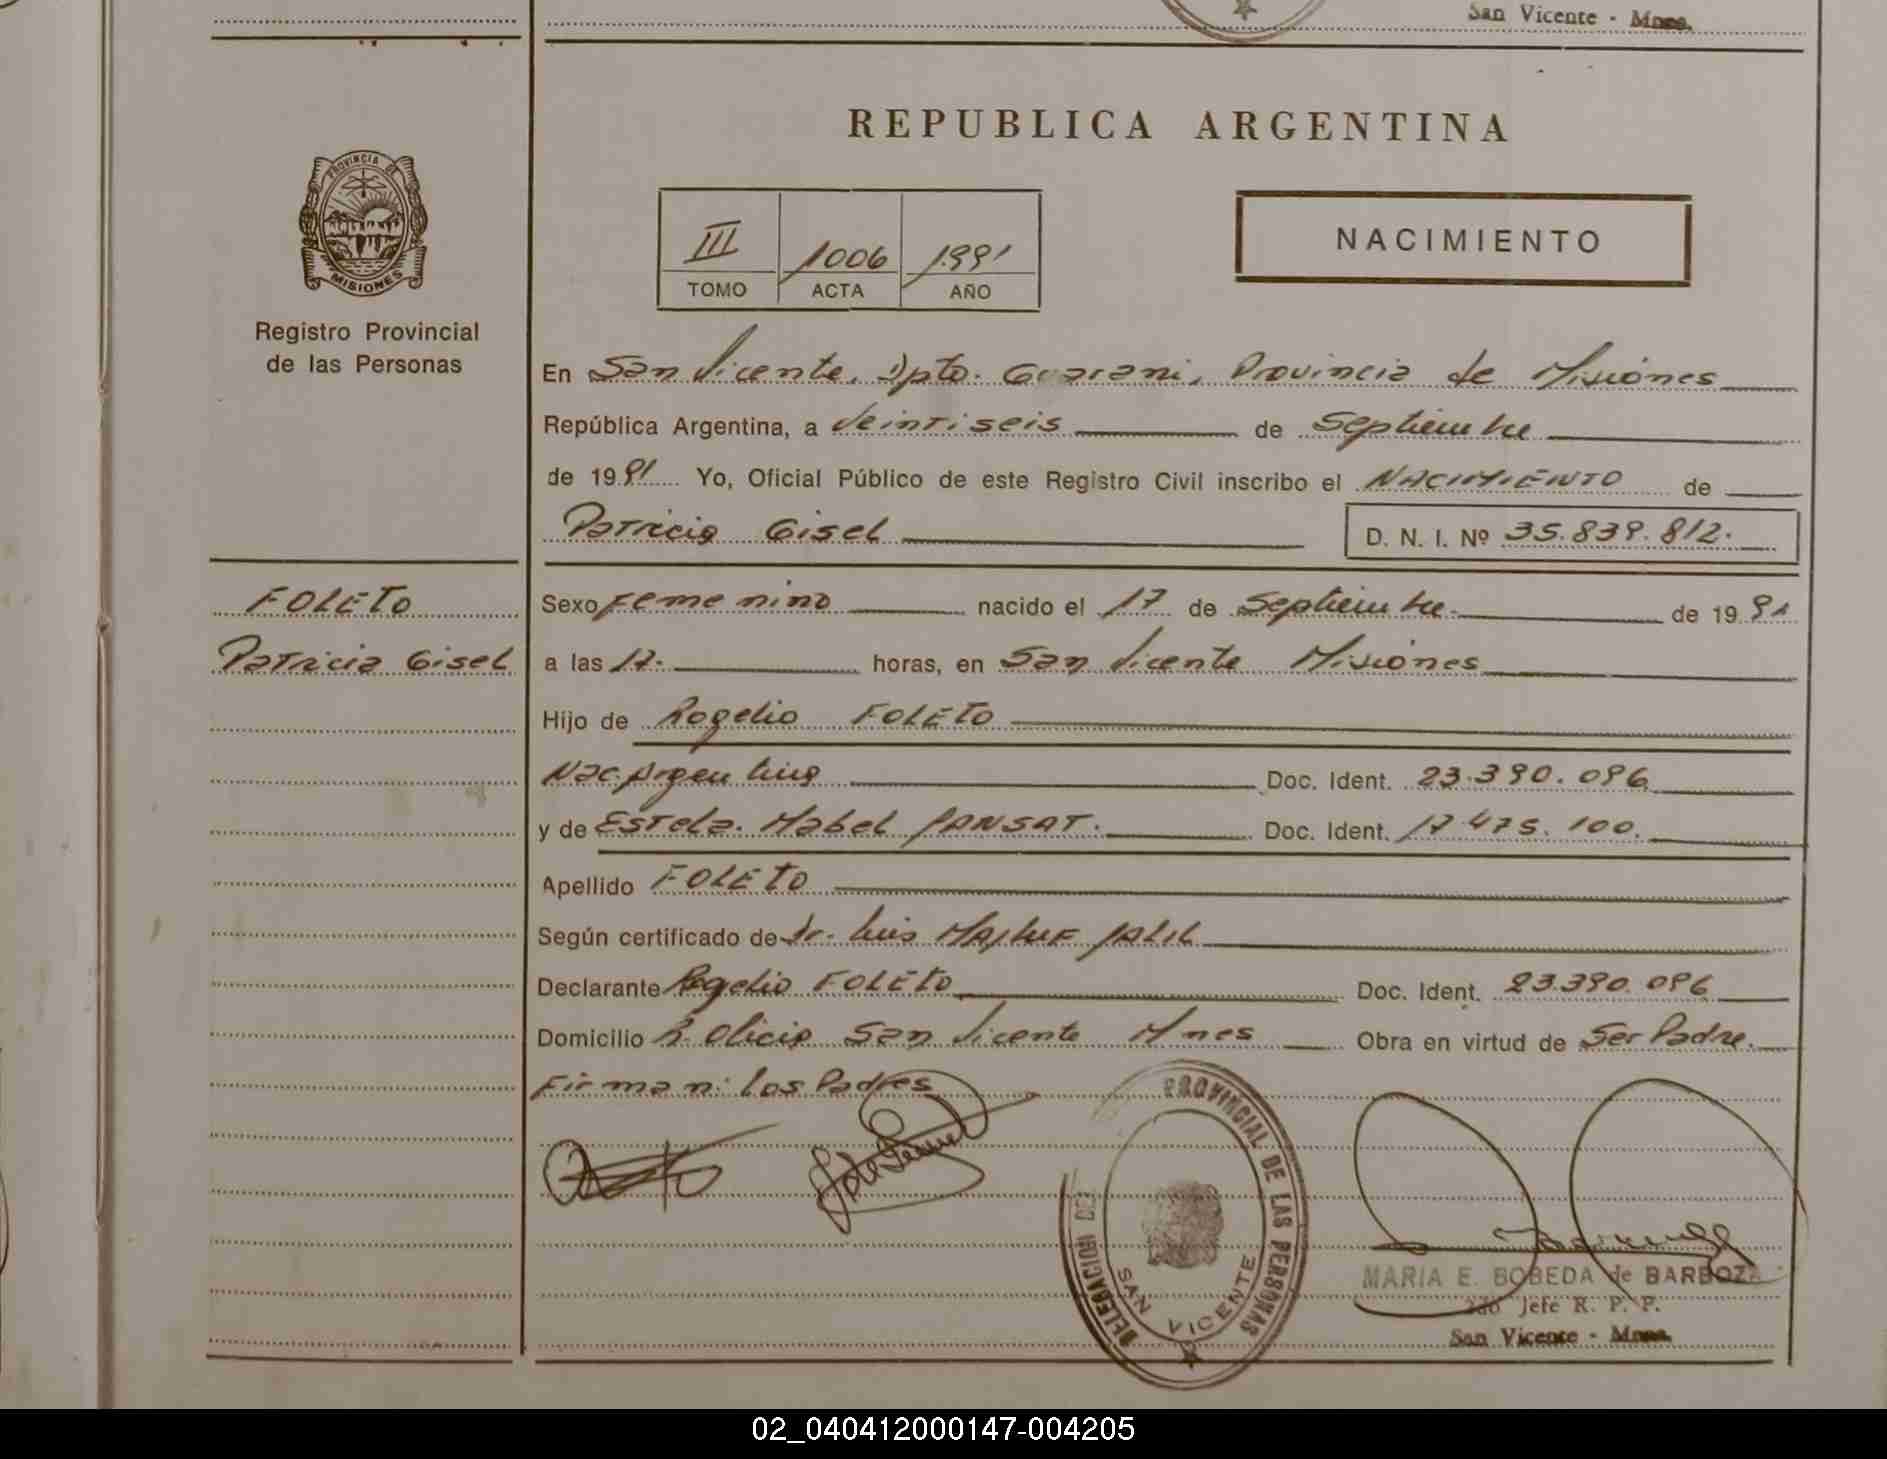 San Vicente - Mnes.
REPUBLICA ARGENTINA
PROVINCIA DE
MISIONES
Registro Provincial
de las Personas
III 1006 1991
TOMO ACTA AÑO
NACIMIENTO
En San Vicente, Dpto. Guarani, Provincia de Misiones
República Argentina, a Veintiseis de Septiembre
de 1991 Yo, Oficial Público de este Registro Civil inscribo el NACIMIENTO de
Patricia Gisel D. N. I. Nº 35.839.812.
FOLETO
Patricia Gisel
Sexo Femenino nacido el 17 de Septiembre de 1991
a las 17. horas, en San Vicente Misiones
Hijo de Rogelio FOLETO
Nac. Argentina Doc. Ident. 23.390.096
y de Estela Mabel PANSAT. Doc. Ident. 17.475.100.
Apellido FOLETO
Según certificado de Dr. Luis JALIL
Declarante Rogelio FOLETO Doc. Ident. 23.390.096
Domicilio San Vicente Mnes Obra en virtud de Ser Padre.
Firman: Los Padres
DELEGACION DEL PROVINCIAL DE LAS PERSONAS
SAN VICENTE
MARIA E. BOBEDA de BARBOZA
2do Jefe R. P. P.
San Vicente - Mnes.
02_040412000147-004205